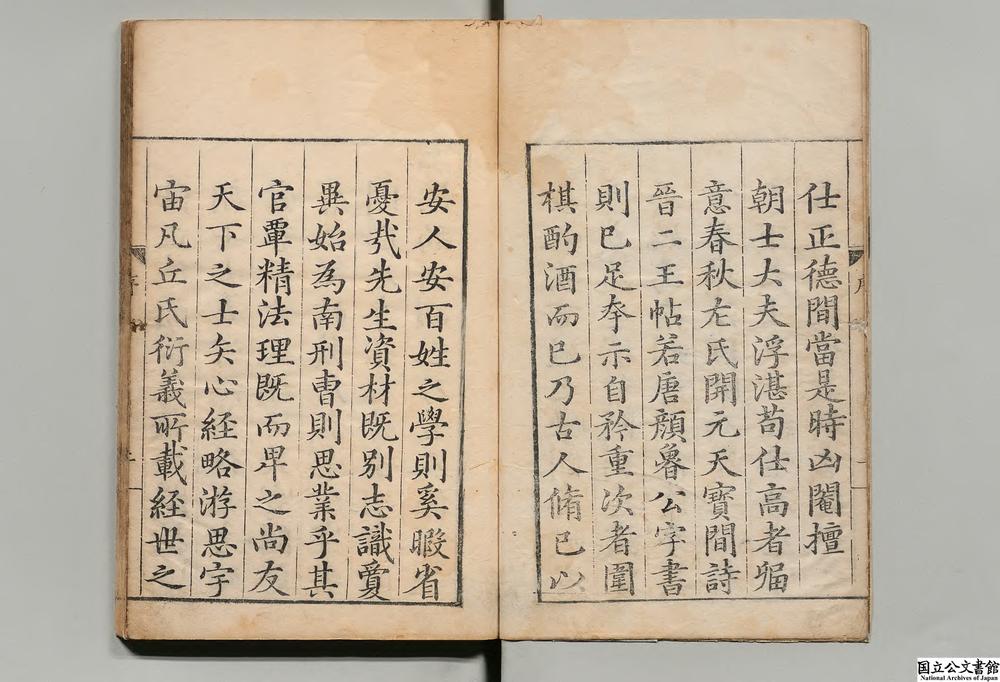 仕正德間當是時凶閹擅
朝士大夫浮湛苟仕高者獧
意春秋左氏開元天寶間詩
晉二王帖若唐顏魯公字書
則已足夲示自矜重次者圍
棋酌酒而已乃古人脩已以
安人安百姓之學則奚暇省
憂㢤先生資材既别志識爰
異始為南刑曹則思業乎其
官覃精法理既而卑之尚友
天下之士矢心経略游思宇
宙凡丘氏衍義所載経世之
序
国立公文書館
National Archives of Japan